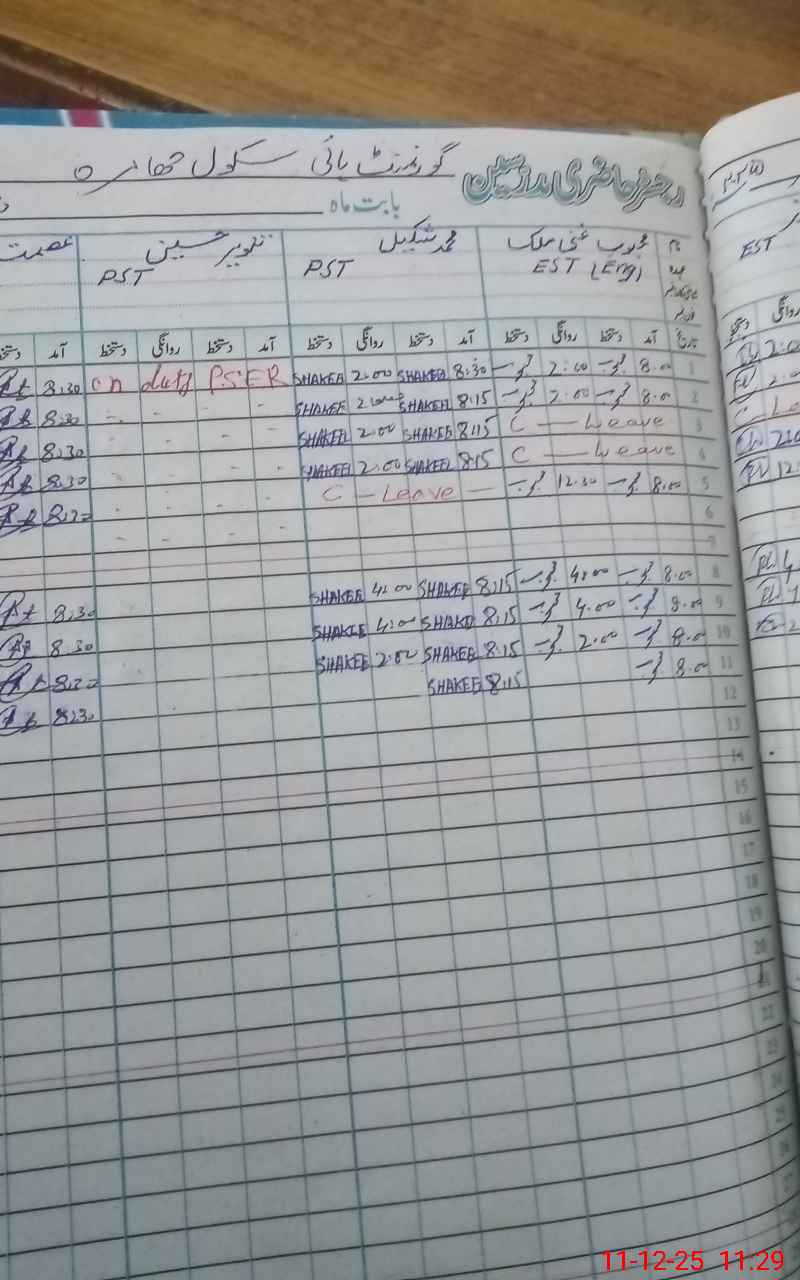 رجسٹر حاضری مدرسین گورنمنٹ ہائی سکول
بابت ماہ
نام محبوب غنی ملک محمد شکیل تنویر حسین عصمت
عہدہ EST (Eng) PST PST
تاریخ آمد دستخط روانگی دستخط آمد دستخط روانگی دستخط آمد دستخط روانگی دستخط آمد
1 8.00 2:00 8:30 SHAKEEL 2:00 SHAKEEL on duty PSER 8:30
2 8.00 2.00 8:15 SHAKEEL SHAKEEL - - - - 8:30
3 C - Leave 8:15 SHAKEEL 2:00 SHAKEEL - - - - 8:30
4 C - Leave 8:15 SHAKEEL 2:00 SHAKEEL - - - - 8:30
5 8.00 12.30 C - Leave - - - - - 8:30
6 - - - -
7
8 8.00 4:00 8:15 SHAKEEL 4:00 SHAKEE 8:30
9 8.00 4.00 8:15 SHAKEE 4:00 SHAKEE 8:30
10 8.00 2.00 8:15 SHAKEE 2:00 SHAKEE 8:30
11 8.00 8:15 SHAKEE 8:30
12
13
14
15
16
17
18
19
20
21
22
23
24
25
26
27
EST
11-12-25 11:29